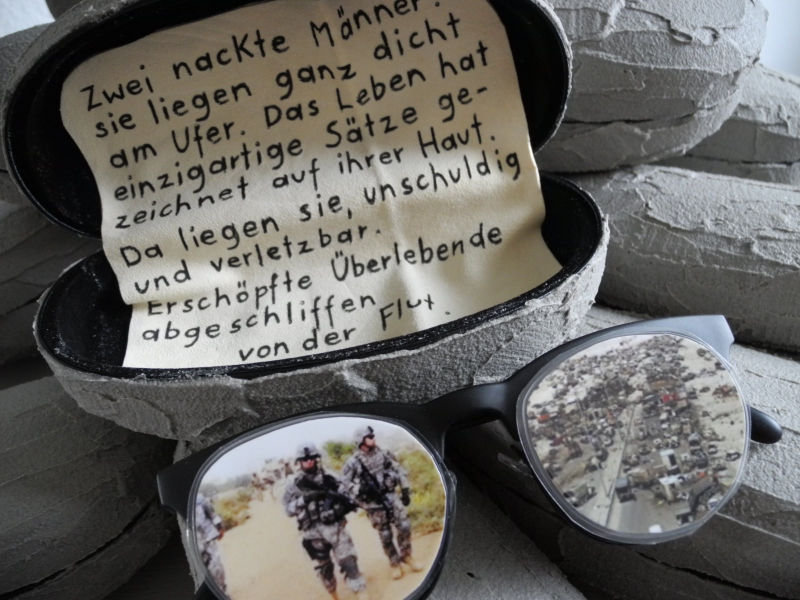 Zwei nackte Männer.
sie liegen ganz dicht
am Ufer. Das Leben hat
einzigartige Sätze ge-
zeichnet auf ihrer Haut.
Da liegen sie, unschuldig
und verletzbar.
Erschöpfte Überlebende
abgeschliffen
von der Flut.